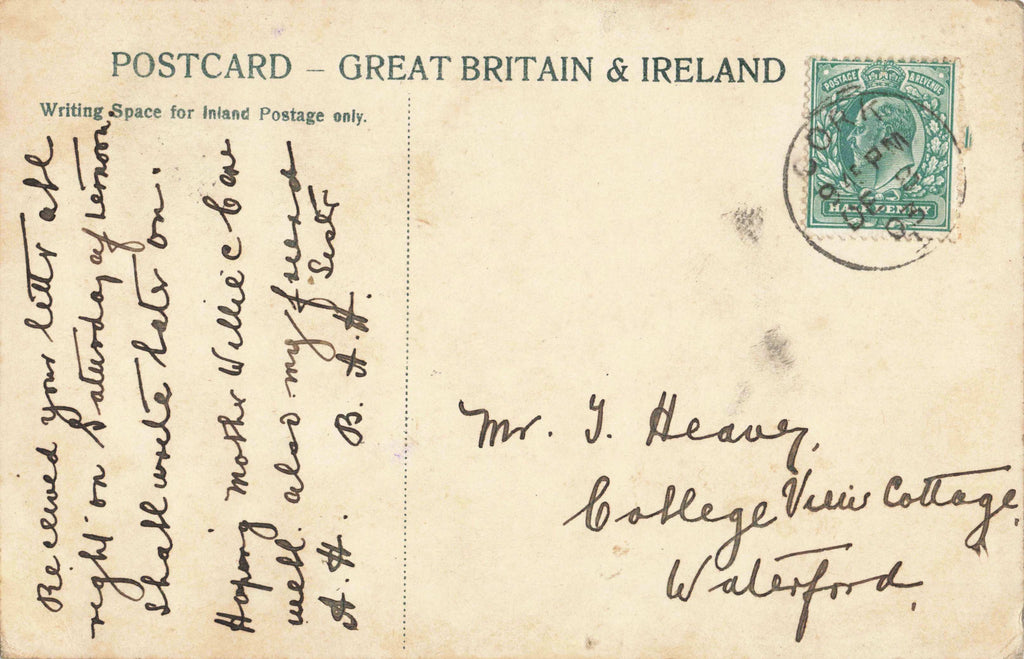 POSTCARD – GREAT BRITAIN & IRELAND
Writing Space for Inland Postage only.
POSTAGE & REVENUE
HALFPENNY
CORK
8 45 PM
DE
Received your letter all
right on Saturday afternoon.
Shall write later on.
Hoping Mother Willie C are
well. also my friend
Sister
A. H. B. A. H.
Mr. J. Heavey,
College View Cottage,
Waterford.